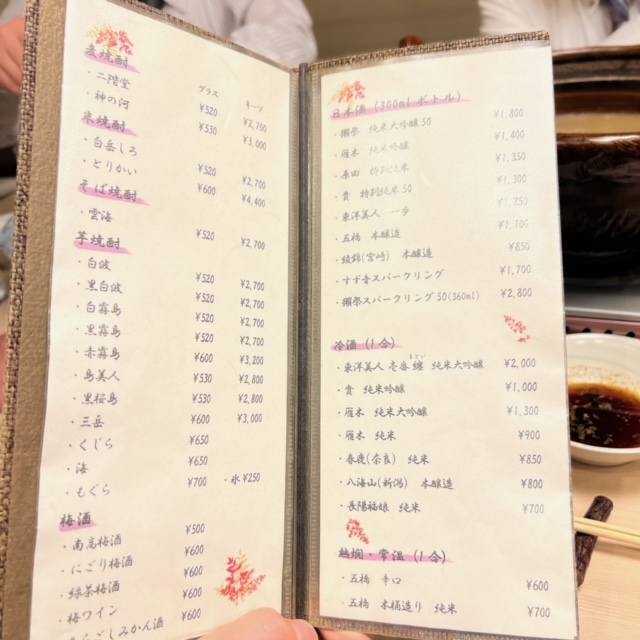 麦焼酎 グラス キープ
・二階堂 ¥520 ¥2,700
・神の河 ¥530 ¥3,000
米焼酎
・白岳しろ ¥520 ¥2,700
・とりかい ¥600 ¥4,400
そば焼酎
・雲海 ¥520 ¥2,700
芋焼酎
・白波 ¥520 ¥2,700
・黒白波 ¥520 ¥2,700
・白霧島 ¥520 ¥2,700
・黒霧島 ¥520 ¥2,700
・赤霧島 ¥600 ¥3,200
・島美人 ¥530 ¥2,800
・黒桜島 ¥530 ¥2,800
・三岳 ¥600 ¥3,000
・くじら ¥650
・海 ¥650
・もぐら ¥700 ・氷 ¥250
梅酒
・南高梅酒 ¥500
・にごり梅酒 ¥600
・緑茶梅酒 ¥600
・梅ワイン ¥600
ごしみかん酒 ¥600
日本酒 (300ml ボトル)
・獺祭 純米大吟醸 50 ¥1,800
・雁木 純米吟醸 ¥1,400
・原田 特別純米 ¥1,350
・貴 特別純米 50 ¥1,300
・東洋美人 一歩 ¥1,250
・五橋 本醸造 ¥1,100
・綾錦(宮崎) 本醸造 ¥850
・すず音スパークリング ¥1,700
・獺祭スパークリング 50(360ml) ¥2,800
冷酒 (1合)
・東洋美人 壱番纏 純米大吟醸 ¥2,000
・貴 純米吟醸 ¥1,000
・雁木 純米大吟醸 ¥1,300
・雁木 純米 ¥900
・春鹿(奈良) 純米 ¥850
・八海山(新潟) 本醸造 ¥800
・長陽福娘 純米 ¥700
熱燗・常温 (1合)
・五橋 辛口 ¥600
・五橋 木桶造り 純米 ¥700